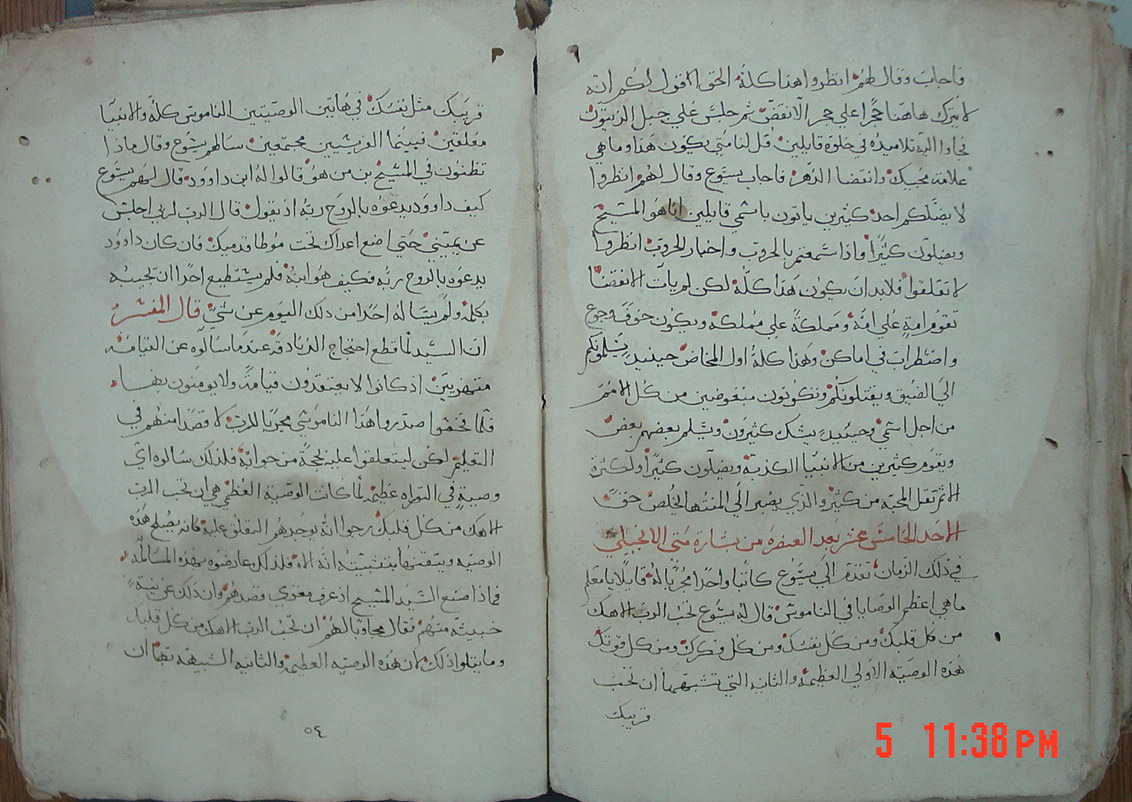 فاجاب وقال لهم انظروا هذا كله الحق اقول لكم انه
لا يترك هاهنا حجرا علي حجر الا نقض ثم جلس علي جبل الزيتون
فجاوا اليه تلاميذه في خلوة قايلين قل لنا متي يكون هذا وما هي
علامة مجيك وانقضا الدهر فاجاب يسوع وقال لهم انظروا
لا يضلكم احد كثيرين ياتون باسمي قايلين انا هو المسيح
ويضلون كثيرا واذا سمعتم بالحروب واخبار الحروب انظروا
لا تقلقوا فلا بد ان يكون هذا كله لكن لم يات الانقضا
تقوم امة علي امة ومملكة علي مملكة ويكون خوف وجوع
واضطراب في اماكن وهذا كله اول المخاض حينيد يسلمونكم
الي الضيق ويقتلونكم وتكونون مبغوضين من كل الامم
من اجل اسمي وحينيد يشك كثيرون ويسلم بعضهم بعض
ويقوم كثيرين من الانبيا الكذبة ويضلون كثيرا ولكثرة
الاثم تقل المحبة من كثير والذي يصبر الي المنتها يخلص حق
الاحد الخامس عشر بعد العنصره من بشارة متي الانجيلي
في ذلك الزمان تقدم الي يسوع كاتبا واحدا مجربا له قايلا يا معلم
ما هي اعظم الوصايا في الناموس قال له يسوع تحب الرب الاهك
من كل قلبك ومن كل نفسك ومن كل فكرك ومن كل قوتك
هذه الوصيه الاولي العظيمة والثانيه التي تشبهها ان تحب
قريبك
قريبك مثل نفسك في هاتين الوصيتين الناموس كله والانبيا
معلقين فبينما الفريسيين مجتمعين سالهم يسوع وقال ماذا
تظنون في المسيح بن من هو قالوا له ابن داوود قال لهم يسوع
كيف داوود يدعوه بالروح ربه اذ يقول قال الرب لربي اجلس
عن يميني حتي اضع اعداك تحت موطا قدميك فان كان داوود
يدعوه بالروح ربه فكيف هو ابنه فلم يستطيع احدا ان يجيبه
بكلمة ولم يساله احدا من ذلك اليوم عن شي قال المفسر
ان السيد لما قطع احتجاج الزنادقه عندما سالوه عن القيامه
متهزيين اذ كانوا لا يعتقدون قيامة ولا يومنون بها
فلما تحققوا صدروا هذا الناموسي مجربا للرب لا قصدا منهم في
التعليم لكن ليتعلقوا عليه بحجة من جوابه فلذلك سالوه اي
وصية في التوراه عظيم لما كانت الوصية العظمي هي ان تحب الرب
الاهك من كل قلبك رجوا انه يوجدهم التعلق عليه فانه يصلح هذه
الوصيه ويتقنها بتثبيته انه الاه فلذلك عارضوه بهذه المسالة
فماذا صنع السيد المسيح اذ عرف مغزي قصدهم وان ذلك عن نية
خبيثه منهم فقال مجاوبا لهم ان تحب الرب الاهك من كل قلبك
وما يتلوا ذلك لان هذه الوصيه العظيمة والثانيه الشبيهه بها ان
٥٤
5 11:38 PM